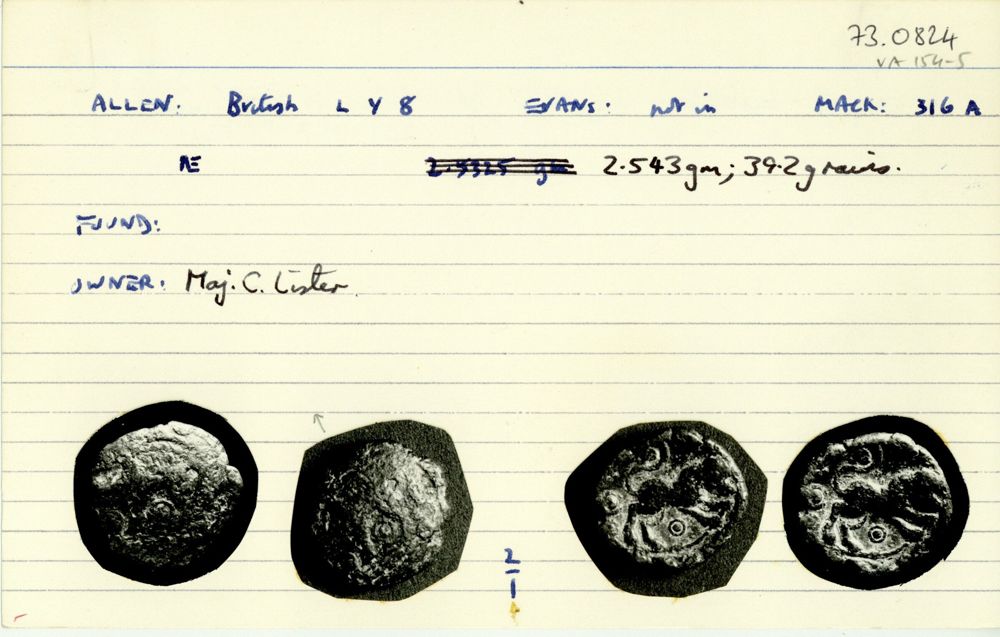 73.0824
VA 154-5
ALLEN: British L Y 8 EVANS: not in MACK: 316 A
Æ 2.543gm; 39.2grains.
FOUND:
OWNER: Maj. C. Lister
2
1